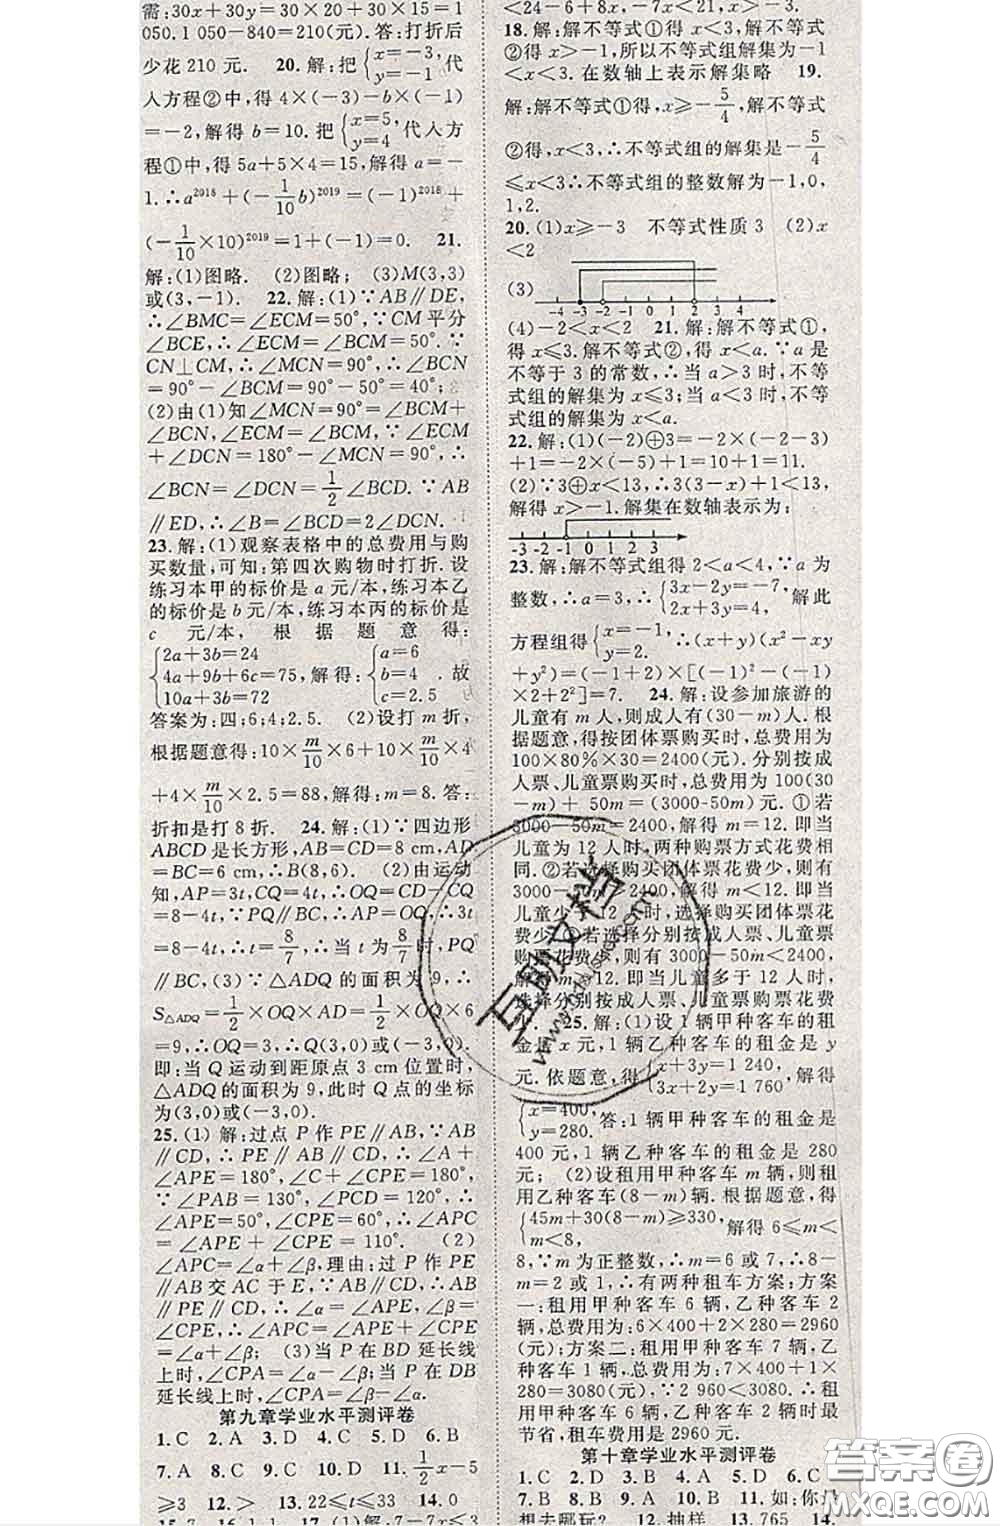 需:30x+30y=30×20+30×15=1
050.1 050-840=210(元).答:打折后
少花 210 元. 20.解:把{x=-3, y=-1 代
入方程②中,得 4×(-3)-b×(-1)
=-2,解得 b=10.把{x=5, y=4 代入方
程①中,得 5a+5×4=15,解得 a=-
1.∴a²⁰¹⁸+(-1/10 b)²⁰¹⁹=(-1)²⁰¹⁸+
(-1/10×10)²⁰¹⁹=1+(-1)=0. 21.
解:(1)图略. (2)图略; (3)M(3,3)
或(3,-1). 22.解:(1)∵AB∥DE,
∴∠BMC=∠ECM=50°,∵CM平分
∠BCE,∴∠ECM=∠BCM=50°.∵
CN⊥CM,∴∠MCN=90°∴∠BCN
=90°-∠BCM=90°-50°=40°;
(2)由(1)知∠MCN=90°=∠BCM+
∠BCN,∠ECM=∠BCM,∵∠ECM
+∠DCN=180°-∠MCN=90°.∴
∠BCN=∠DCN=1/2∠BCD.∵AB
∥ED,∴∠B=∠BCD=2∠DCN.
23.解:(1)观察表格中的总费用与购
买数量,可知:第四次购物时打折.设
练习本甲的标价是 a 元/本,练习本乙
的标价是 b 元/本,练习本丙的标价是
c 元/本,根据题意得:
{2a+3b=24 4a+9b+6c=75, 10a+3b=72 解得:{a=6 b=4 c=2.5 .故
答案为:四;6;4;2.5. (2)设打 m 折,
根据题意得:10×m/10×6+10×m/10×4
+4×m/10×2.5=88,解得:m=8.答:
折扣是打 8 折. 24.解:(1)∵四边形
ABCD是长方形,AB=CD=8 cm,AD
=BC=6 cm,∴B(8,6). (2)由运动
知,AP=3t,CQ=4t,∴OQ=CD-CQ
=8-4t,∵PQ∥BC,∴AP=OQ,∴3t
=8-4t,∴t=8/7,∴当 t 为8/7时,PQ
∥BC,(3)∵△ADQ的面积为 9,∴
S△ADQ=1/2×OQ×AD=1/2×OQ×6
=9,∴OQ=3,∴Q(3,0)或(-3,0).
即:当 Q 运动到距原点 3 cm 位置时,
△ADQ的面积为 9,此时 Q 点的坐标
为(3,0)或(-3,0).
25.(1) 解:过点 P 作 PE∥AB,∵AB
∥CD,∴PE∥AB∥CD,∴∠A+
∠APE=180°,∠C+∠CPE=180°,
∵∠PAB=130°,∠PCD=120°,∴
∠APE=50°,∠CPE=60°,∴∠APC
=∠APE+∠CPE=110°. (2)
∠APC=∠α+∠β,理由:过 P 作PE
∥AB 交 AC 于 E,∵AB∥CD,∴AB
∥PE∥CD,∴∠α=∠APE,∠β=
∠CPE,∴∠APC=∠APE+∠CPE
=∠α+∠β; (3)当 P 在 BD 延长线
上时,∠CPA=∠α-∠β;当 P 在 DB
延长线上时,∠CPA=∠β-∠α.
第九章学业水平测评卷
1.C 2.A 3.D 4.C 5.D 6.B
7.A 8.C 9.C 10.D 11.1/2x-5
≥3 12.> 13.22≤t≤33 14.0
<24-6+8x,-7x<21,x>-3.
18.解:解不等式①得 x<3,解不等式
②得 x>-1,所以不等式组解集为-1
<x<3.在数轴上表示解集略 19.
解:解不等式①得,x≥-5/4,解不等式
②得,x<3,∴不等式组的解集是-5/4
≤x<3∴不等式组的整数解为-1,0,
1,2.
20.(1)x≥-3 不等式性质 3 (2)x
<2
(3) -4 -3 -2 -1 0 1 2 3 4
(4)-2<x<2 21.解:解不等式①,
得 x≤3.解不等式②,得 x<a.∵a 是
不等于 3 的常数,∴当 a>3 时,不等
式组的解集为 x≤3;当 a<3 时,不等
式组的解集为 x<a.
22.解:(1)(-2)⊕3=-2×(-2-3)
+1=-2×(-5)+1=10+1=11.
(2)∵3⊕x<13,∴3(3-x)+1<13,
解得 x>-1.解集在数轴表示为:
-3 -2 -1 0 1 2 3
23.解:解不等式组得 2<a<4,∵a 为
整数,∴a=3,∴{3x-2y=-7, 2x+3y=4, 解此
方程组得{x=-1, y=2. ∴(x+y)(x²-xy
+y²)=(-1+2)×[(-1)²-(-1)
×2+2²]=7. 24.解:设参加旅游的
儿童有 m 人,则成人有(30-m)人.根
据题意,得按团体票购买时,总费用为
100×80%×30=2400(元).分别按成
人票、儿童票购买时,总费用为100(30
-m)+50m=(3000-50m)元.①若
3000-50m=2400,解得 m=12.即当
儿童为 12 人时,两种购票方式花费相
同.②若选择购买团体票花费少,则有
3000-50m>2400,解得 m<12.即当
儿童少于 12 人时,选择购买团体票花
费少.③若选择分别按成人票、儿童票
购票花费少,则有 3000-50m<2400,
解得 m>12.即当儿童多于 12 人时,
选择分别按成人票、儿童票购票花费
少. 25.解:(1)设 1 辆甲种客车的租
金是 x 元,1 辆乙种客车的租金是 y
元.依题意,得{x+3y=1 240, 3x+2y=1 760, 解得
{x=400, y=280. 答:1 辆甲种客车的租金是
400 元,1 辆乙种客车的租金是 280
元; (2)设租用甲种客车 m 辆,则租
用乙种客车(8-m)辆.根据题意,得
{45m+30(8-m)≥330, m<8, 解得 6≤m<
8,∵m 为正整数,∴m=6或 7,∴8-
m=2或 1,∴有两种租车方案:方案
一:租用甲种客车 6 辆,乙种客车 2
辆,总费用为:6×400+2×280=2960
(元);方案二:租用甲种客车 7 辆,乙
种客车 1 辆,总费用为:7×400+1×
280=3080(元),∵2 960<3080.∴租用
甲种客车 6 辆,乙种客车 2 辆时最节
省,租车费用是 2960 元.
第十章学业水平测评卷
1.C 2.D 3.B 4.D 5.A 6.C
7.B 8.B 9.A 10.B 11.如:你最
想去哪玩? 12.抽样 13.765 14.
互助文档
答案圈
MXQE.COM